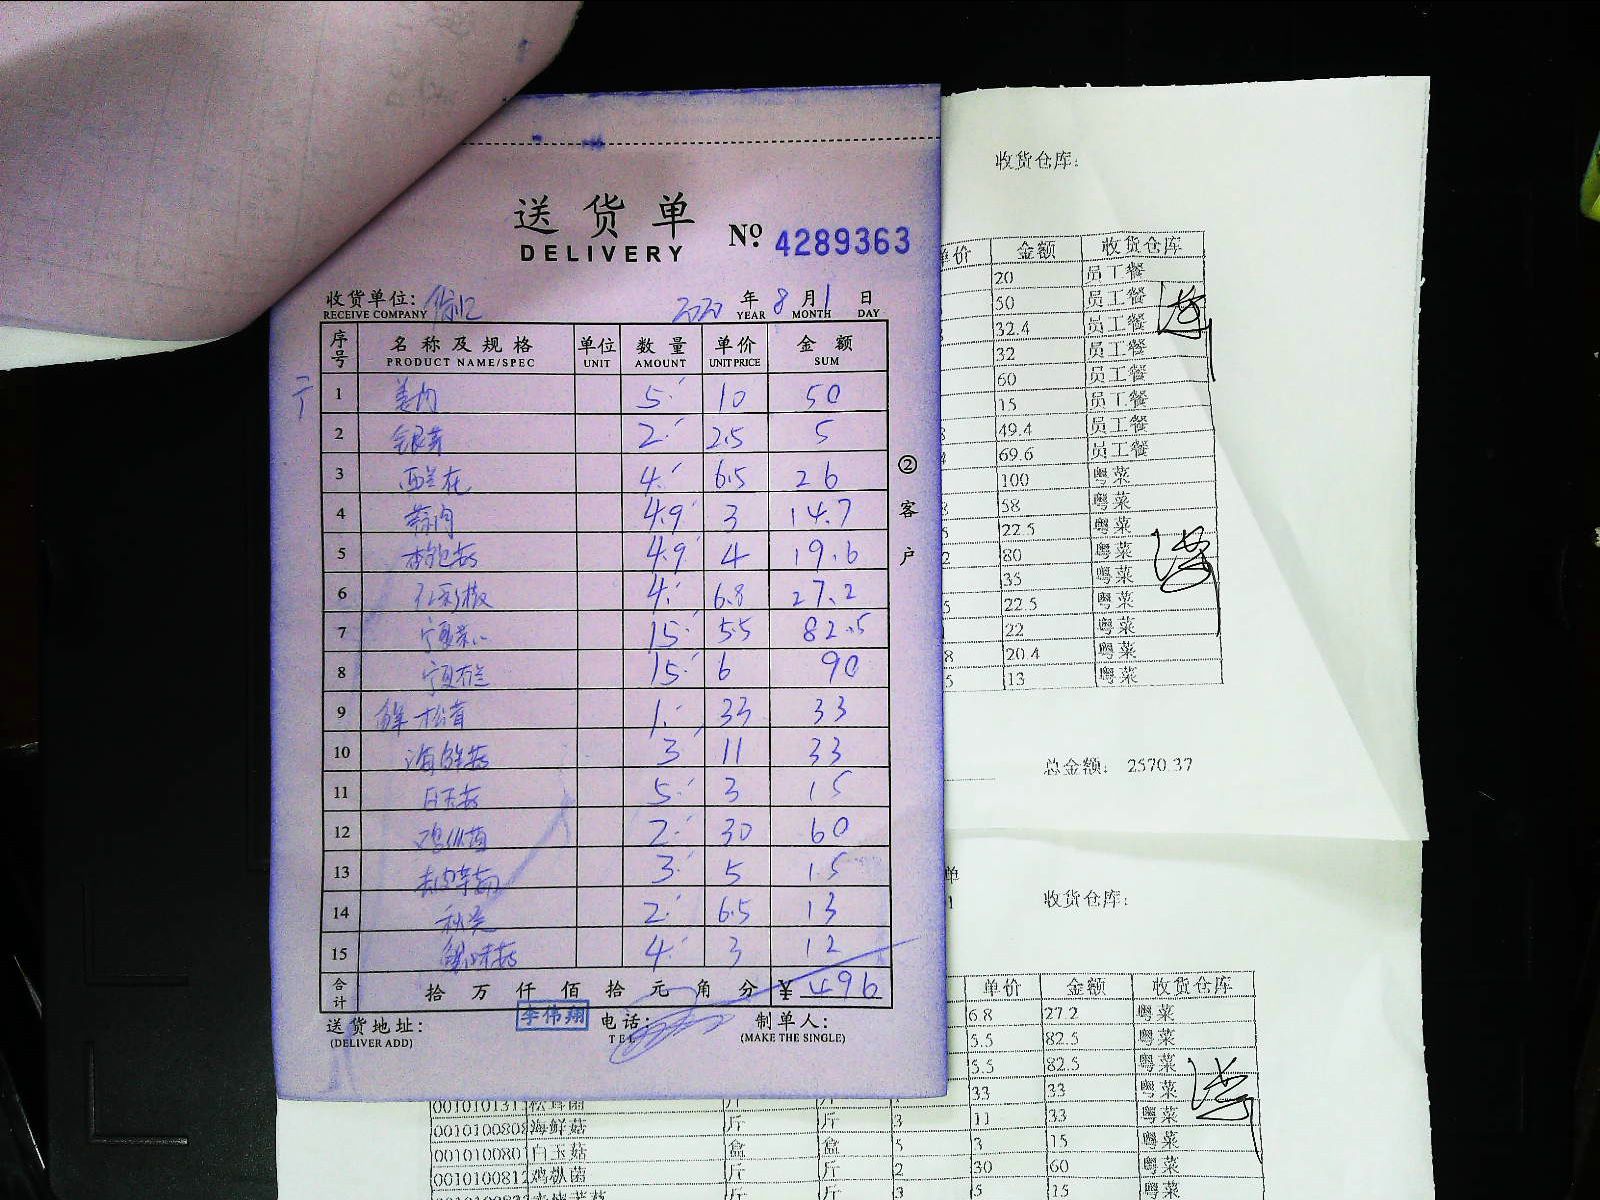 送货单
DELIVERY
№ 4289363
收货单位:
RECEIVE COMPANY
2020 年 8 月 1 日
YEAR MONTH DAY
序号 名称及规格 单位 数量 单价 金额
PRODUCT NAME/SPEC UNIT AMOUNT UNIT PRICE SUM
1 姜肉 5 10 50
2 银芽 2 2.5 5
3 西兰花 4 6.5 26
4 蒜肉 4.9 3 14.7
5 杏鲍菇 4.9 4 19.6
6 红彩椒 4 6.8 27.2
7 宁夏菜心 15 5.5 82.5
8 宁夏芥兰 15 6 90
9 鲜松茸 1 33 33
10 海鲜菇 3 11 33
11 白玉菇 5 3 15
12 鸡枞菌 2 30 60
13 3 5 15
14 秋葵 2 6.5 13
15 蟹味菇 4 3 12
合计 拾 万 仟 佰 拾 元 角 分 ¥ 496
送货地址:
(DELIVER ADD)
李伟翔
电话:
TEL
制单人:
(MAKE THE SINGLE)
②客户
收货仓库:
单价 金额 收货仓库
20 员工餐
50 员工餐
32.4 员工餐
32 员工餐
60 员工餐
15 员工餐
49.4 员工餐
69.6 员工餐
100 粤菜
58 粤菜
22.5 粤菜
80 粤菜
35 粤菜
22.5 粤菜
22 粤菜
20.4 粤菜
13 粤菜
总金额: 2570.37
单
收货仓库:
单价 金额 收货仓库
6.8 27.2 粤菜
5.5 82.5 粤菜
5.5 82.5 粤菜
33 33 粤菜
海鲜菇 斤 斤 3 11 33 粤菜
白玉菇 盒 盒 5 3 15 粤菜
鸡枞菌 斤 斤 2 30 60 粤菜
斤 斤 3 5 15 粤菜